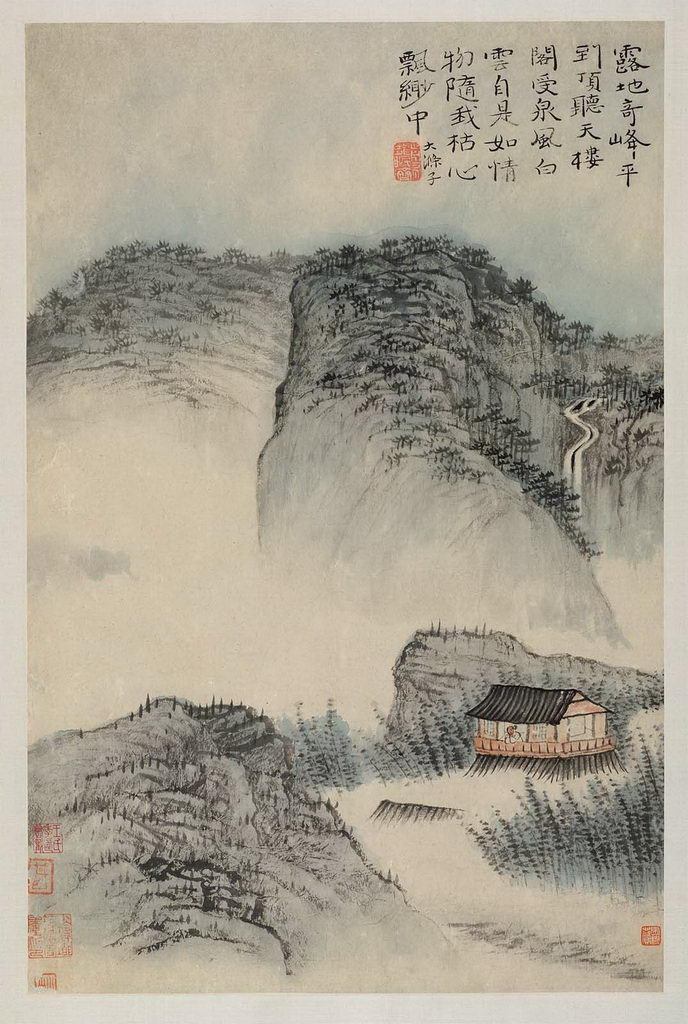 露地奇峰平
到頂聽天樓
閣受泉風白
雲自是如情
物隨我枯心
飄緲中
大滌子